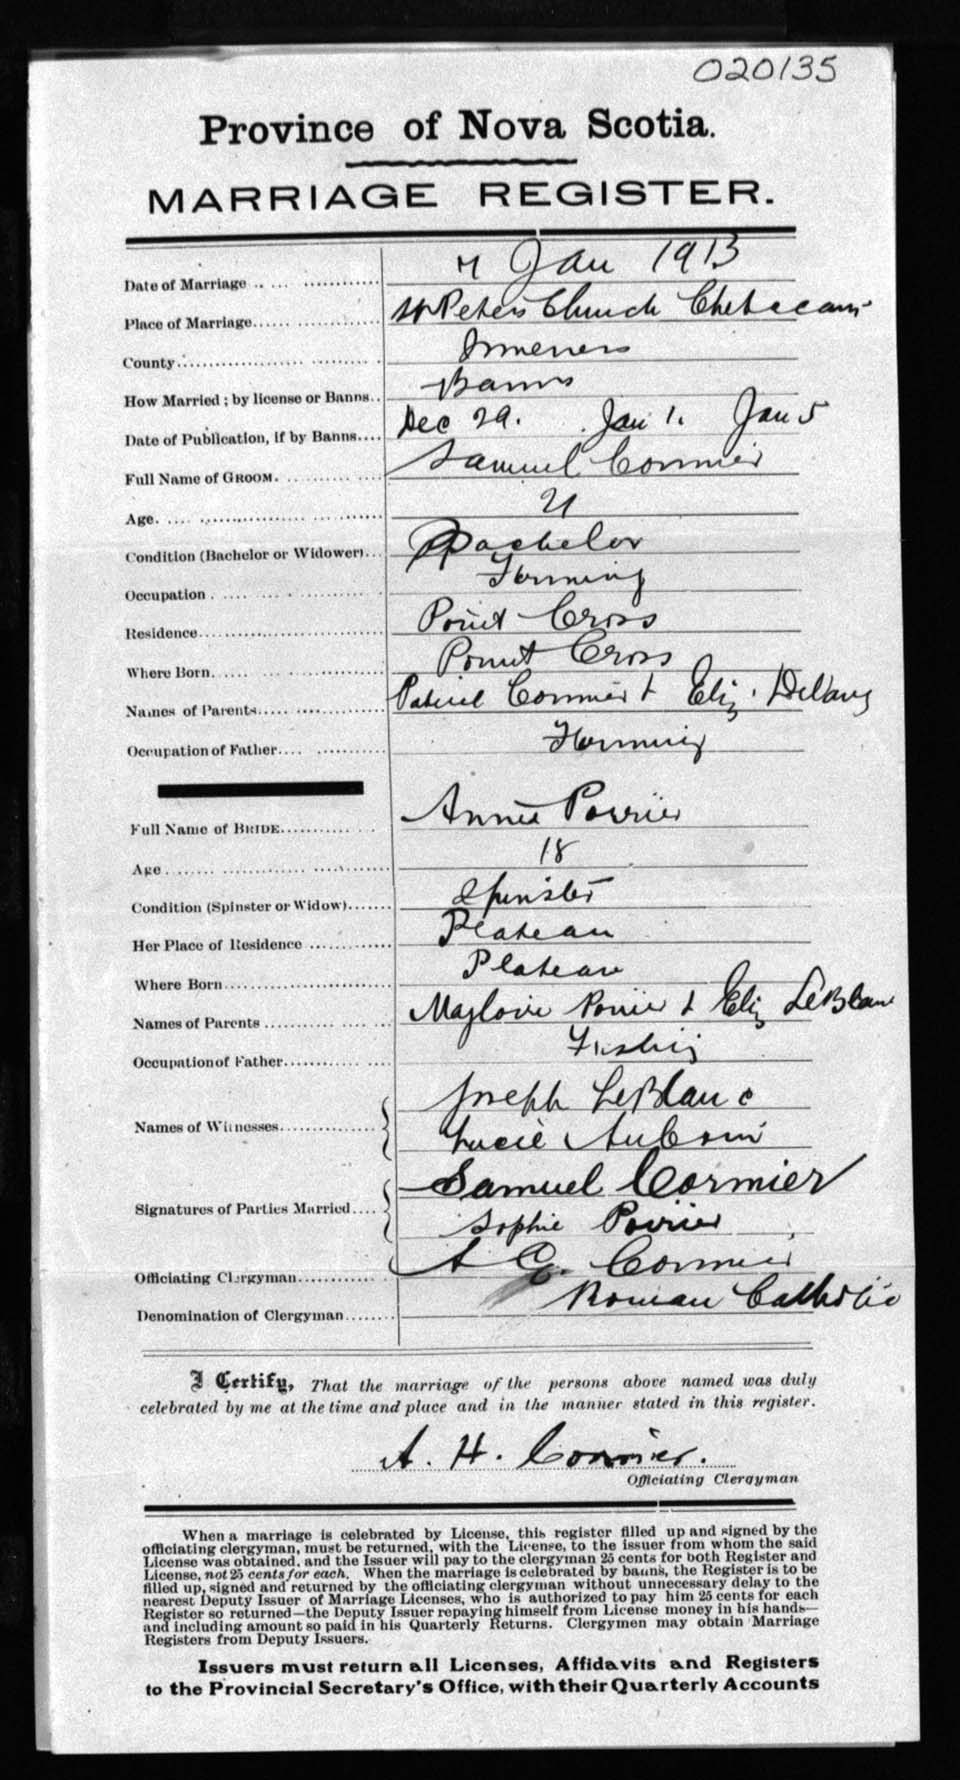 020135
Province of Nova Scotia.
MARRIAGE REGISTER.
Date of Marriage 7 Jan 1913
Place of Marriage St Peters Church Chetecam
County Inverness
How Married ; by license or Banns.. Banns
Date of Publication, if by Banns.... Dec 29. Jan 1. Jan 5
Full Name of GROOM. Samuel Cormier
Age. 21
Condition (Bachelor or Widower)... Bachelor
Occupation Farming
Residence Point Cross
Where Born. Point Cross
Names of Parents Cormier & Eliz.
Occupation of Father Farming
Full Name of BRIDE Annie Poirier
Age 18
Condition (Spinster or Widow) Spinster
Her Place of Residence Plateau
Where Born Plateau
Names of Parents Poirier & Eliz LeBlanc
Occupation of Father Fishing
Names of Witnesses Joseph LeBlanc
Lucie AuCoin
Signatures of Parties Married.... Samuel Cormier
Sophie Poirier
Officiating Clergyman Cormier
Denomination of Clergyman Roman Catholic
I Certify, That the marriage of the persons above named was duly
celebrated by me at the time and place and in the manner stated in this register.
A. H. Cormier.
Officiating Clergyman
When a marriage is celebrated by License, this register filled up and signed by the
officiating clergyman, must be returned, with the License, to the issuer from whom the said
License was obtained, and the Issuer will pay to the clergyman 25 cents for both Register and
License, not 25 cents for each. When the marriage is celebrated by banns, the Register is to be
filled up, signed and returned by the officiating clergyman without unnecessary delay to the
nearest Deputy Issuer of Marriage Licenses, who is authorized to pay him 25 cents for each
Register so returned—the Deputy Issuer repaying himself from License money in his hands—
and including amount so paid in his Quarterly Returns. Clergymen may obtain Marriage
Registers from Deputy Issuers.
Issuers must return all Licenses, Affidavits and Registers
to the Provincial Secretary's Office, with their Quarterly Accounts